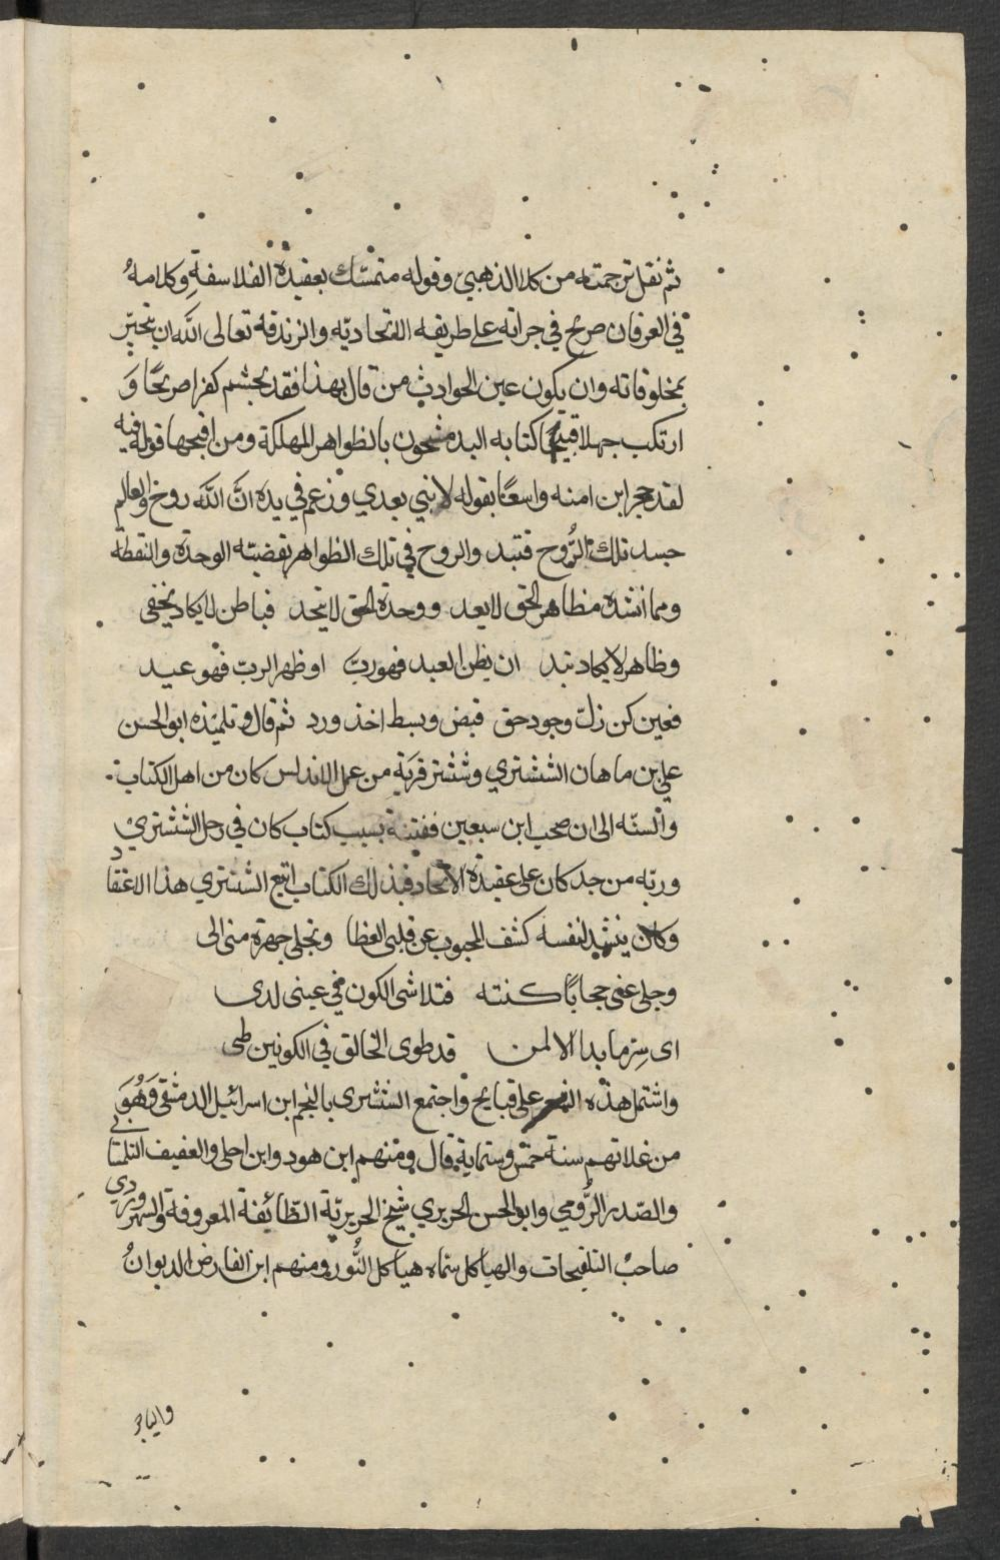 ثم نقل ترجمته من كلا الذهبي وقوله متمسّك بعقيدة الفلاسفةِ وكلامهُ
في العرفان صريح في جراته على طريقه الاتحاديّه والزندقه تعالى الله ان يتحيّز
بمخلوقاته وان يكون عين الحوادث من قال بهذا فقد تجشم كفرا صريحًا وَ
ارتكب جهلا قبيحًا كتابه البد مشحون بالظواهر المهلكة ومن اقبحها قوله فيه
لقد حجر ابن امنه واسعًا بقوله لا نبي بعدي وزعم في بده انّ الله روح والعالم
جسد تلك الرُّوح فتبد والروح في تلك الظواهر بقضيته الوحدة والنقطة
ومما انشده مظاهر الحق لا يعد ووحدة الحق لا يتحد فباطن لا يكاد يخفى
وظاهر لا يكاد يبد ان يظن العبد فهو رب او ظهر الرب فهو عبد
فعين كن زلت وجود حق قبض وبسط اخذ ورد ثم قال وتلميذه ابو الحسن
علي بن ماهان الششتري وششتر قرية من عمل الاندلس كان من اهل الكتاب
والسنّه الى ان صحب ابن سبعين ففتنه بسبب كتاب كان في رحل الششتري
ورثه من جد كان على عقيدة الاتحاد فبذلك الكتاب اتبع الششتري هذا الاعتقاد
وكان ينشد لنفسه كشف المحبوب عن قلبى الغطا وتجلى جهرة منى الى
وجلى عنى حجابًا كنته فتلاشى الكون في عينى لدى
اى سرّ ما بدا الا لمن قد طوى الخالق في الكونين طى
واشتمل هذه على قبايح واجتمع الششترى بالنجم ابن اسرائيل الدمشقى وَهُوَ
من غلاتهم سنة خمس وستماية قال ومنهم ابن هود وابن احلى والعفيف التلمساني
والصّدر الرُّومي وابو الحسن الحريري شيخ الحريريّة الطّائفة المعروفة والسهروردي
صاحب التلقيحات والهياكل سماه هياكل النُّور ومنهم ابن الفارض الديوانُ